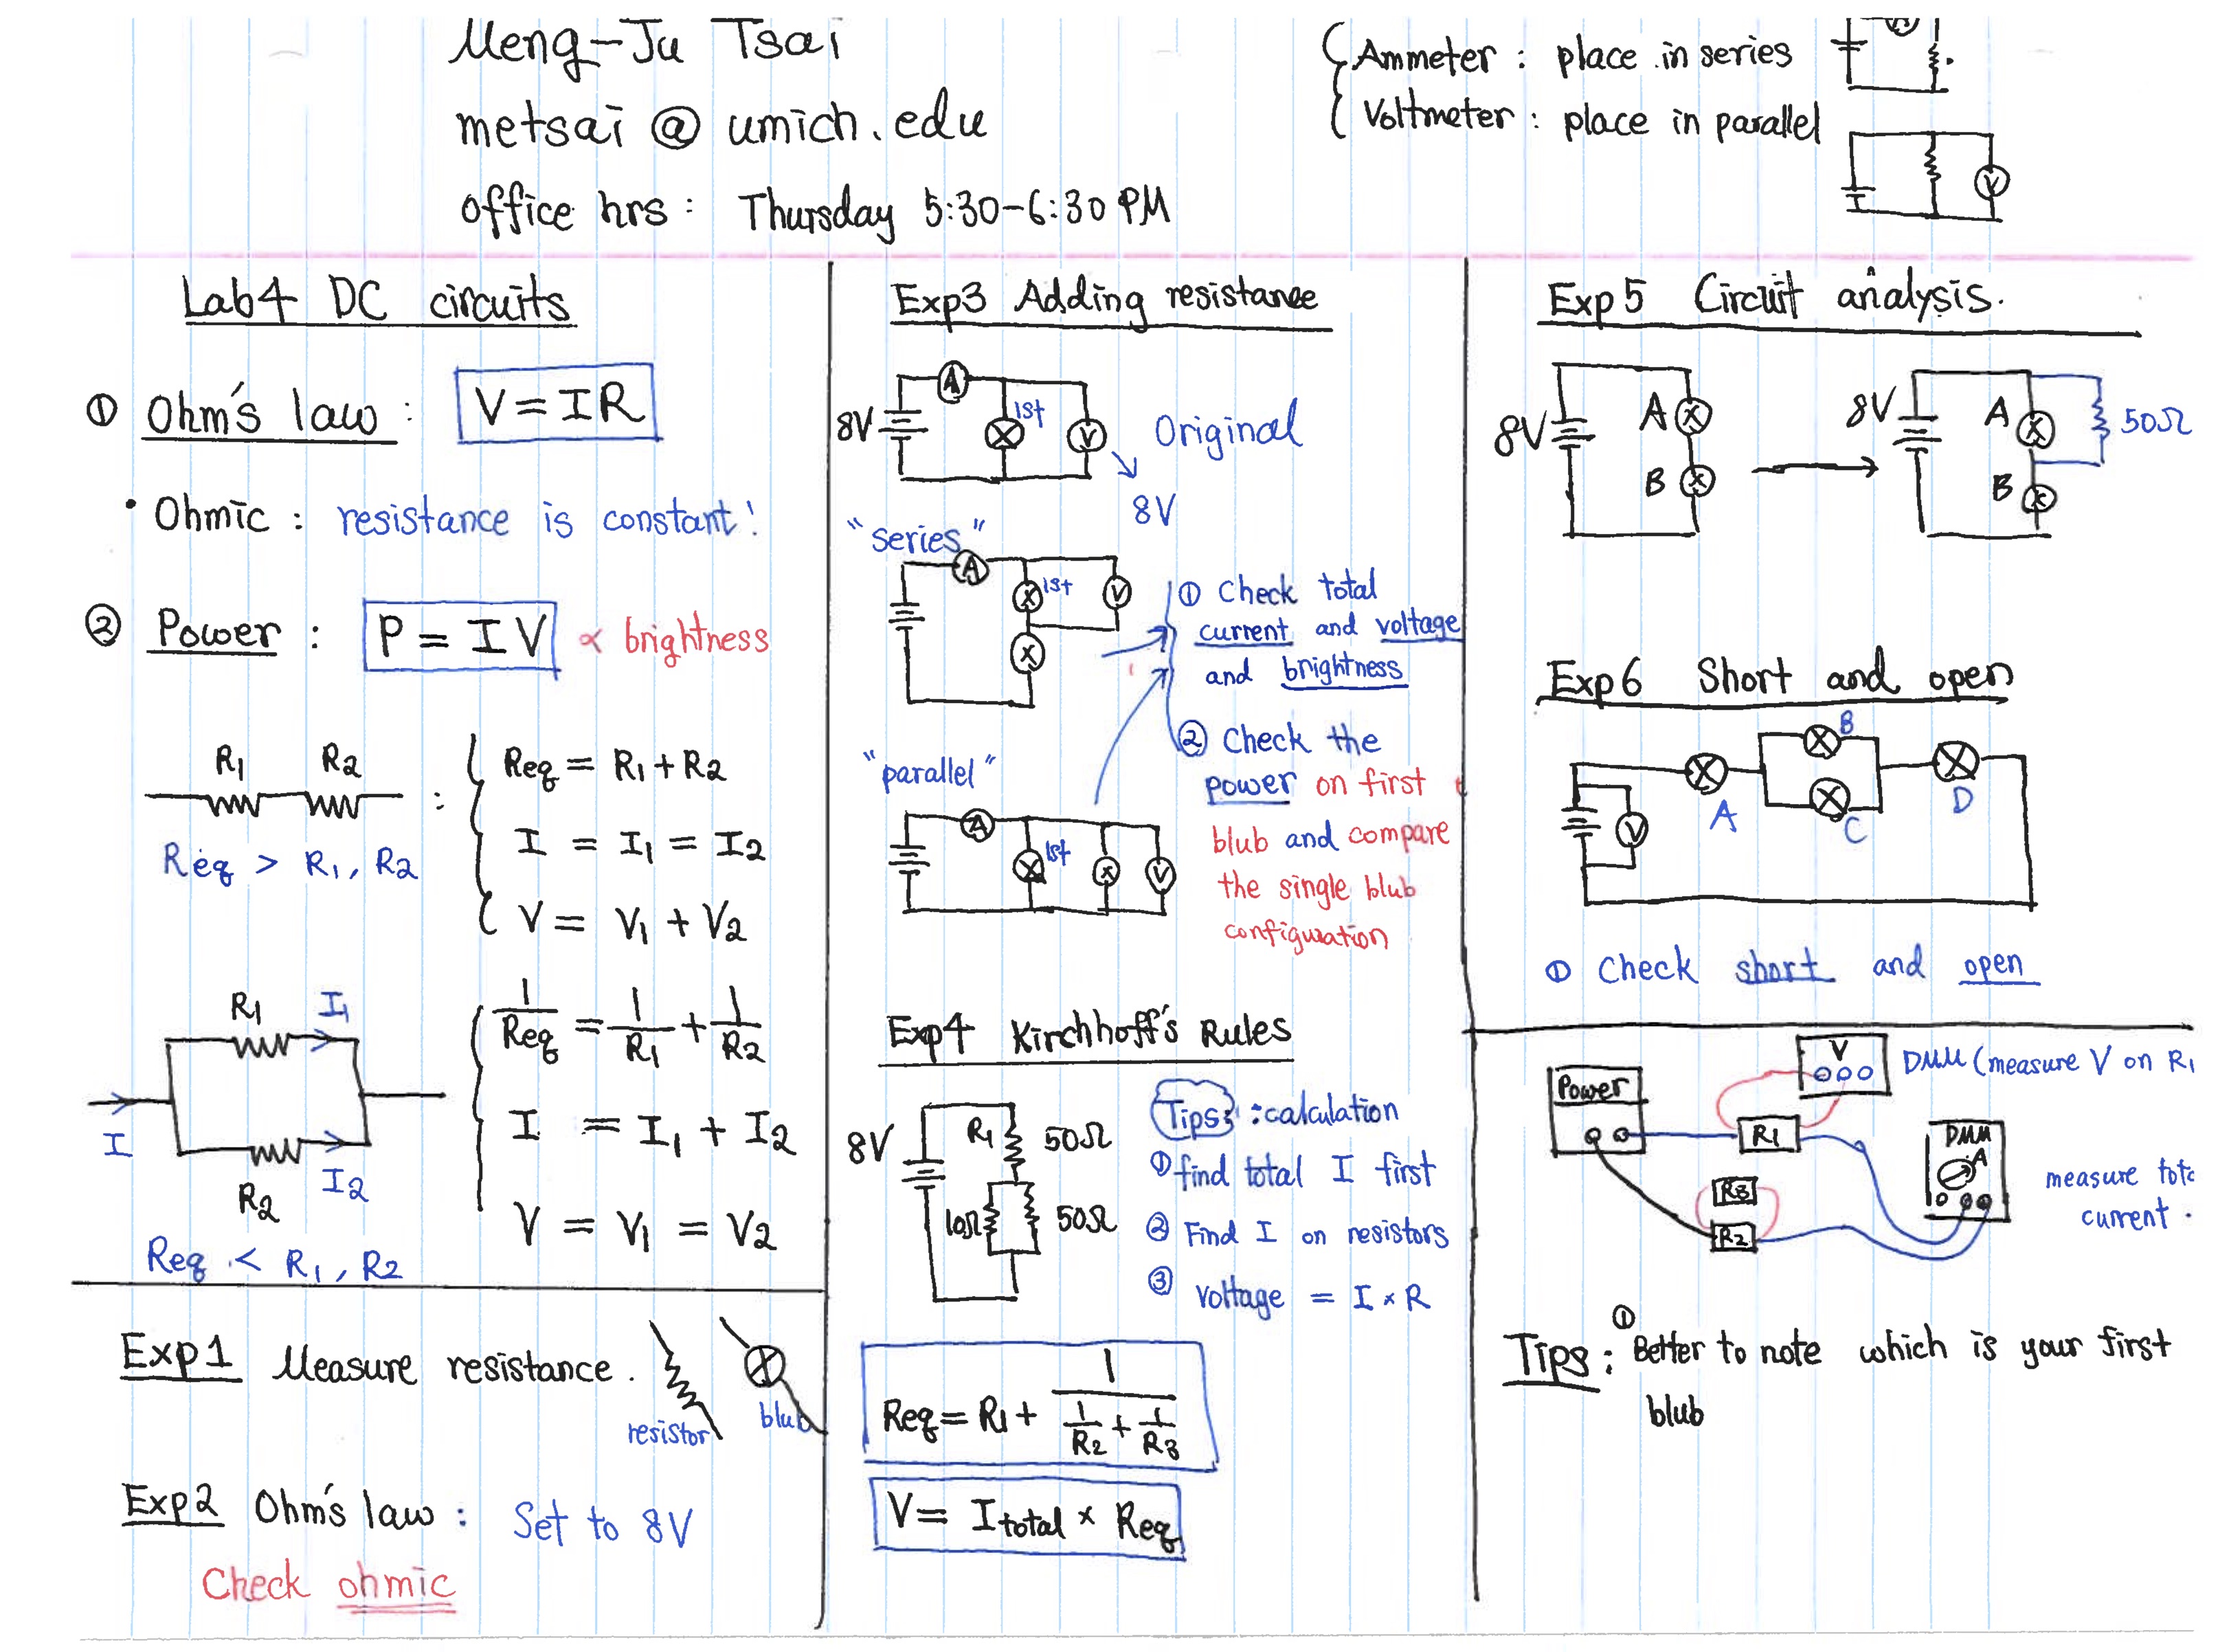 Meng-Ju Tsai
metsai @ umich.edu
office hrs : Thursday 5:30-6:30 PM
Ammeter : place in series
Voltmeter : place in parallel
V
Lab4 DC circuits
① Ohm's law : V = IR
• Ohmic : resistance is constant!
② Power : P = IV ∝ brightness
R1 R2 :
Req > R1, R2
Req = R1 + R2
I = I1 = I2
V = V1 + V2
R1 I1
I
R2 I2
Req < R1, R2
1/Req = 1/R1 + 1/R2
I = I1 + I2
V = V1 = V2
Exp1 Measure resistance.
resistor
blub
Exp2 Ohm's law : Set to 8V
Check ohmic
Exp3 Adding resistance
A
8V 1st V Original
8V
"series"
A
1st V
"parallel"
A
1st V
① Check total
current and voltage
and brightness
② Check the
power on first
blub and compare
the single blub
configuration
Exp4 Kirchhoff's Rules
8V R1 50Ω
10Ω 50Ω
Tips : calculation
① find total I first
② Find I on resistors
③ voltage = I × R
Req = R1 + 1/(1/R2 + 1/R3)
V = Itotal × Req
Exp5 Circuit analysis.
8V A
B
8V A 50Ω
B
Exp6 Short and open
B
V A C D
① Check short and open
Power
V
DMM (measure V on R1
R1
R3
R2
DMM
A
measure tota
current.
Tips : ① Better to note which is your first
blub